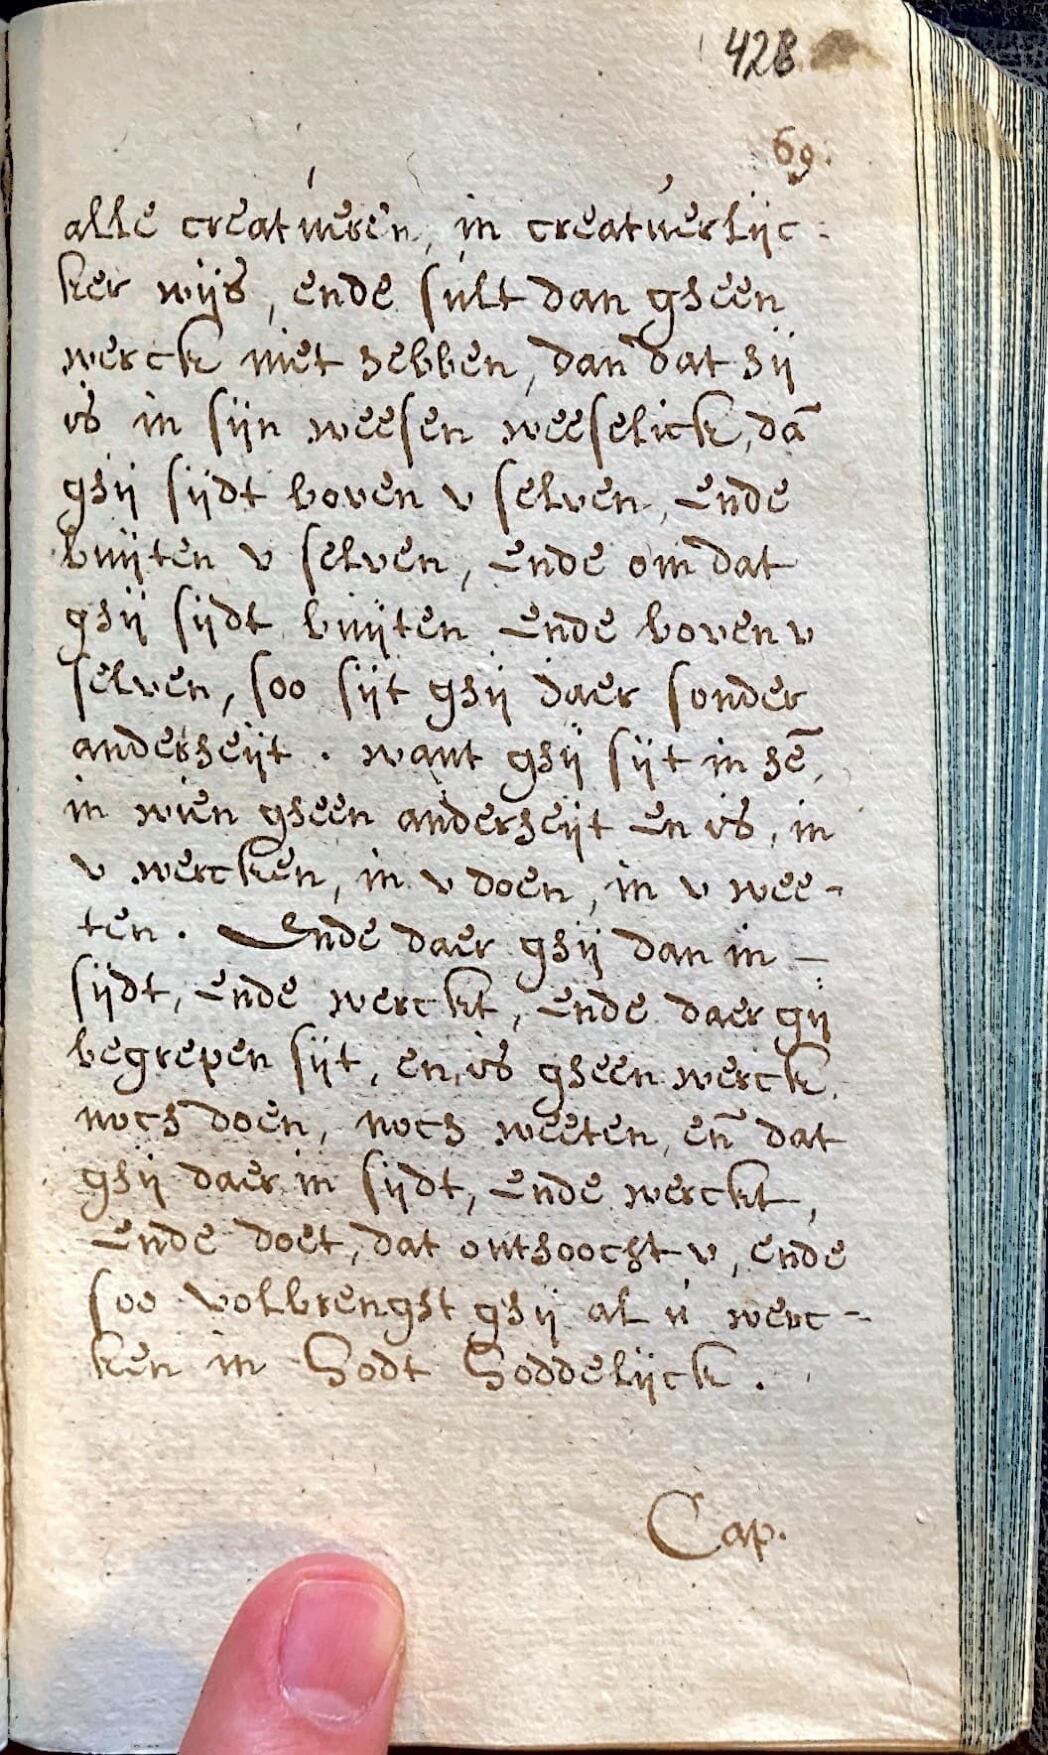 428
69.
alle creatueren, in creatuerlijc-
ker wijs, ende sult dan gheen
werck niet hebben, dan dat hij
is in sijn weesen weeselick, dā
ghij sijdt boven v selven, ende
buijten v selven, ende om dat
ghij sijdt buijten ende boven v
selven, soo sijt ghij daer sonder
anderheijt. want ghij sijt in hē,
in wien gheen anderheijt en is, in
v wercken, in v doen, in v wee-
ten. Ende daer ghij dan in -
sijdt, ende werckt, ende daer gij
begrepen sijt, en is gheen werck,
noch doen, noch weeten, en̄ dat
ghij daer in sijdt, ende werckt,
ende doet, dat onthoocht v, ende
soo volbrenght ghij al u werc-
ken in Godt Goddelijck.
Cap.